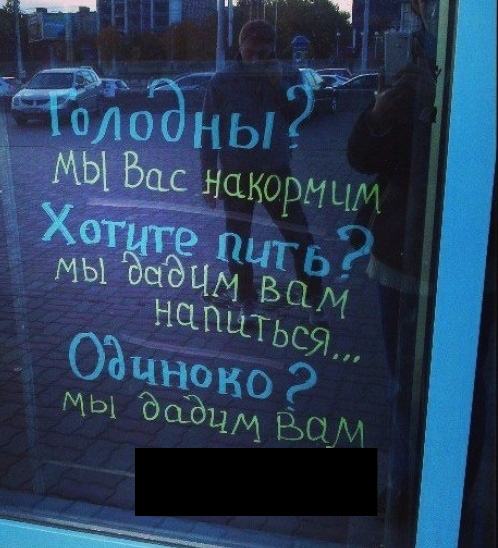 Голодны?
мы Вас накормим
Хотите пить?
мы дадим вам
напиться...
Одиноко?
мы дадим Вам